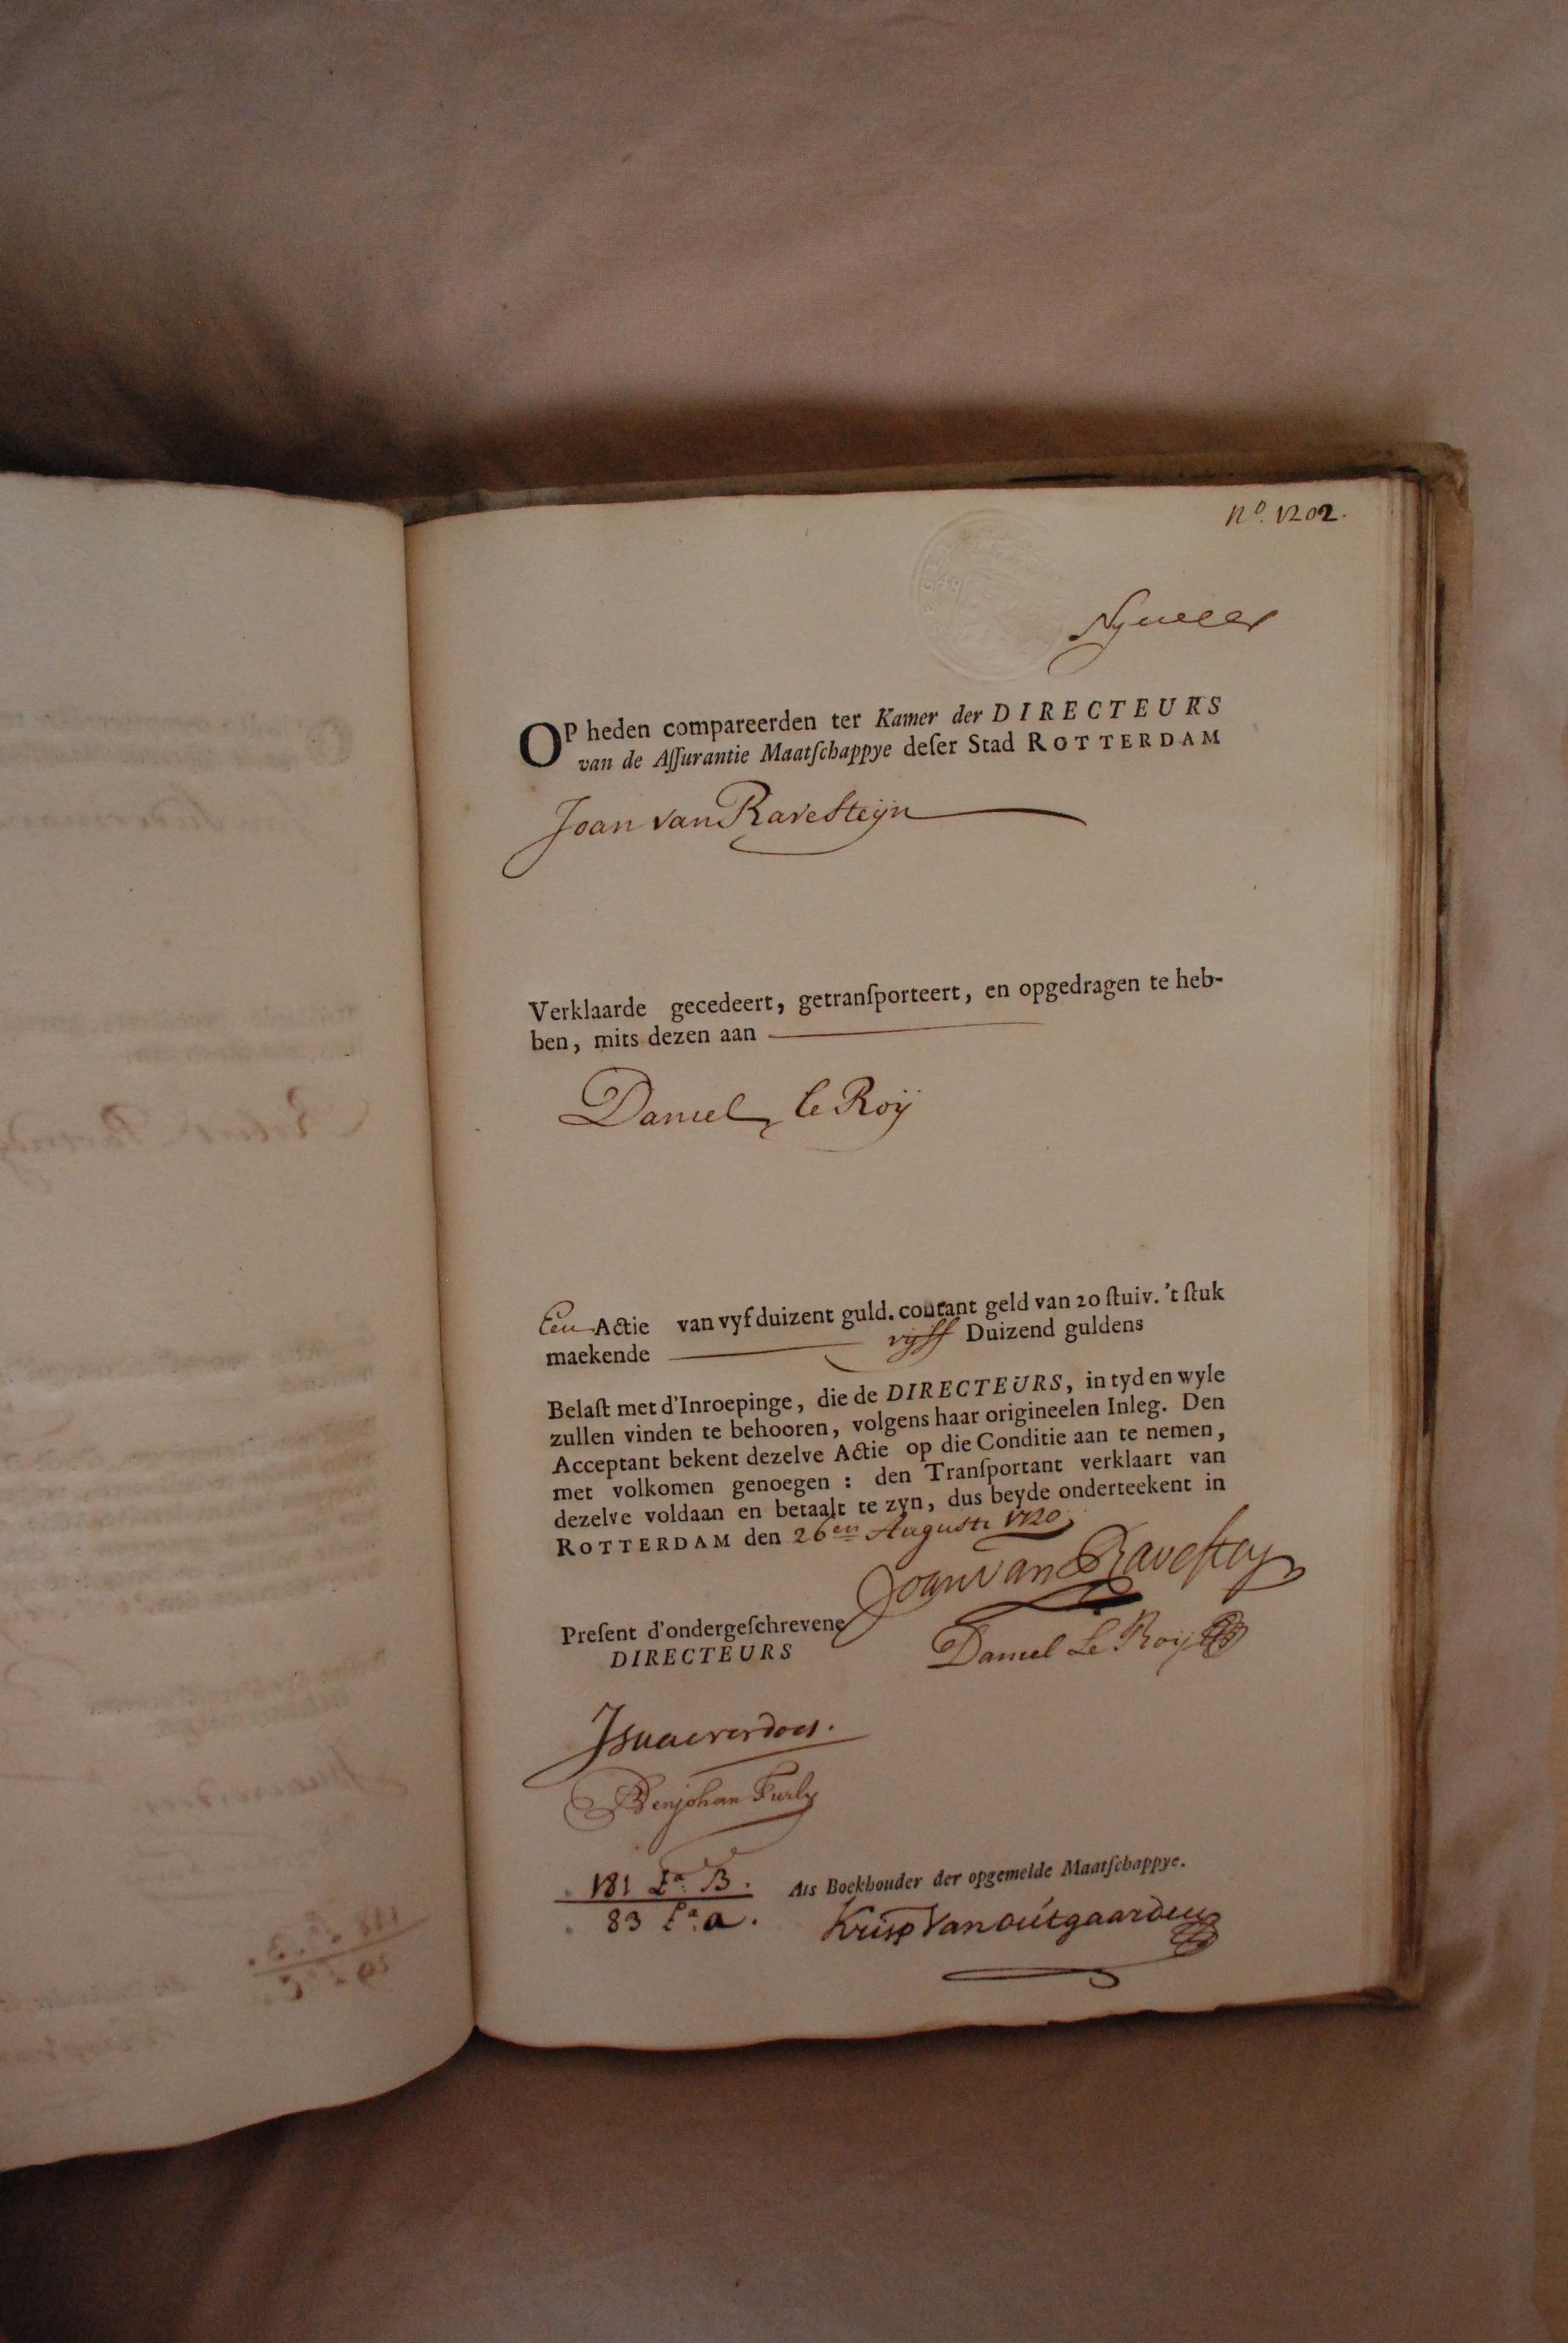 N.º 1202.
OP heden compareerden ter Kamer der DIRECTEURS
van de Aſſurantie Maatſchappye deſer Stad ROTTERDAM
Joan van Ravesteijn
Verklaarde gecedeert, getranſporteert, en opgedragen te heb-
ben, mits dezen aan
Daniel le Roij
Een Actie van vyf duizent guld. courant geld van 20 ſtuiv. 't ſtuk
maekende vijff Duizend guldens
Belaſt met d'Inroepinge, die de DIRECTEURS, in tyd en wyle
zullen vinden te behooren, volgens haar origineelen Inleg. Den
Acceptant bekent dezelve Actie op die Conditie aan te nemen,
met volkomen genoegen : den Tranſportant verklaart van
dezelve voldaan en betaalt te zyn, dus beyde onderteekent in
ROTTERDAM den 26en Augusti 1720,
Joan van Ravesteyn
Preſent d'ondergeſchrevene
DIRECTEURS
Daniel Le Roij
Isaacverdoes.
Benjohan Furly
181 La. B.
Als Boekhouder der opgemelde Maatſchappye.
83 La. a.
Krisp Van outgaarden